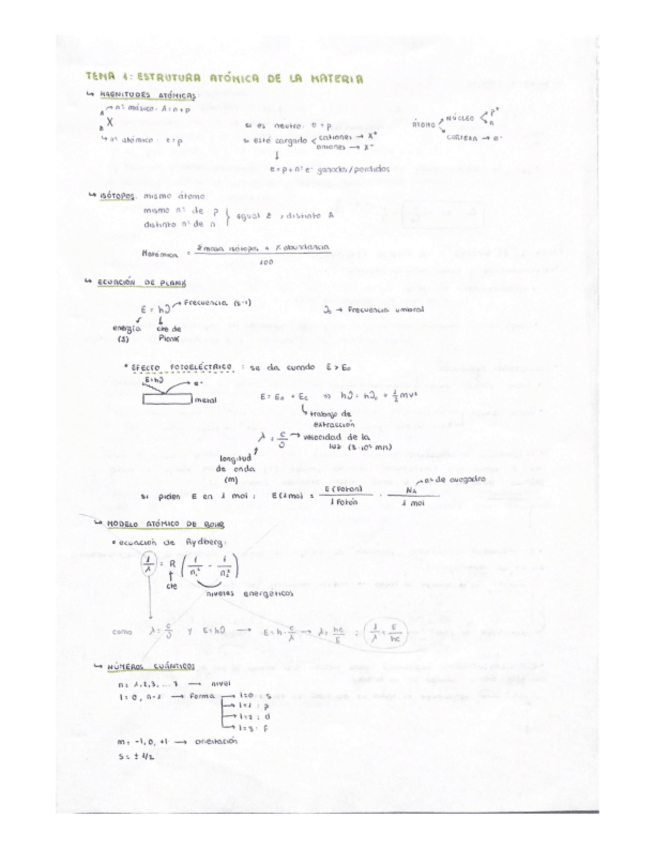 TEMA 1: ESTRUTURA ATÓMICA DE LA MATERIA
↳ MAGNITUDES ATÓMICAS
A → nº másico: A = n + p
X
Z
↳ nº atómico: e = p
si es neutro: e = p
si está cargado < cationes → X⁺
aniones → X⁻
↓
e = p + nº e⁻ ganados / perdidos
ÁTOMO < NÚCLEO < p⁺
n
CORTEZA → e⁻
↳ ISÓTOPOS: mismo átomo
mismo nº de p
distinto nº de n } igual Z, distinto A
Matómica = Σ masa isótopos × % abundancia / 100
↳ ECUACIÓN DE PLANK
E = hν → Frecuencia (s⁻¹)
ν₀ → Frecuencia umbral
energía cte de
(J) Plank
• EFECTO FOTOELÉCTRICO: se da cuando E > E₀
E = hν e⁻
metal
E = E₀ + Ec ⇒ hν = hν₀ + 1/2 mv²
↳ trabajo de
extracción
λ = c/ν → velocidad de la
luz
longitud
de onda
(m)
si piden E en 1 mol: E (1 mol) = E (Fotón) / 1 Fotón · NA / 1 mol → nº de avogadro
↳ MODELO ATÓMICO DE BOHR
• ecuación de Rydberg:
1/λ = R (1/n₁² - 1/n₂²)
↑
cte
niveles energéticos
como λ = c/ν y E = hν → E = h · c/λ → λ = hc/E ; 1/λ = E/hc
↳ NÚMEROS CUÁNTICOS
n = 1, 2, 3, ... 7 → nivel
l = 0, n-1 → Forma → l=0 : s
→ l=1 : p
→ l=2 : d
→ l=3 : f
m = -1, 0, +1 → orientación
s = ± 1/2